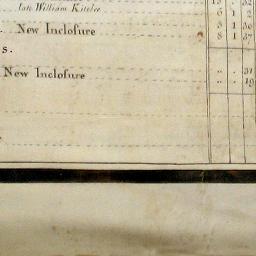 late William Kitelee 6 1 2
. New Inclosure 8 1 36
8 1 37
s.
New Inclosure .. .. 31
.. .. 19